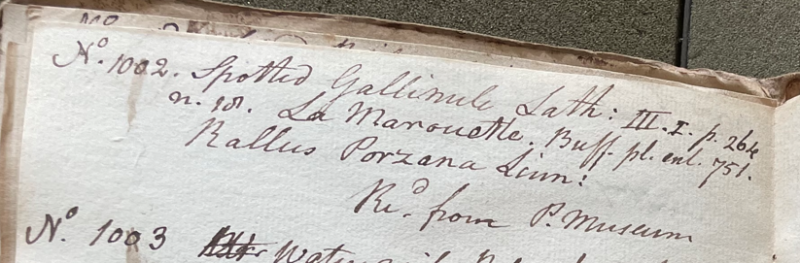 Nº. 1002. Spotted Gallinule Lath: III. I. p. 264
n. 18. La Marouette. Buff. pl. enl. 751.
Rallus Porzana Linn:
Re.d from P. Museum
Nº. 1003 Water